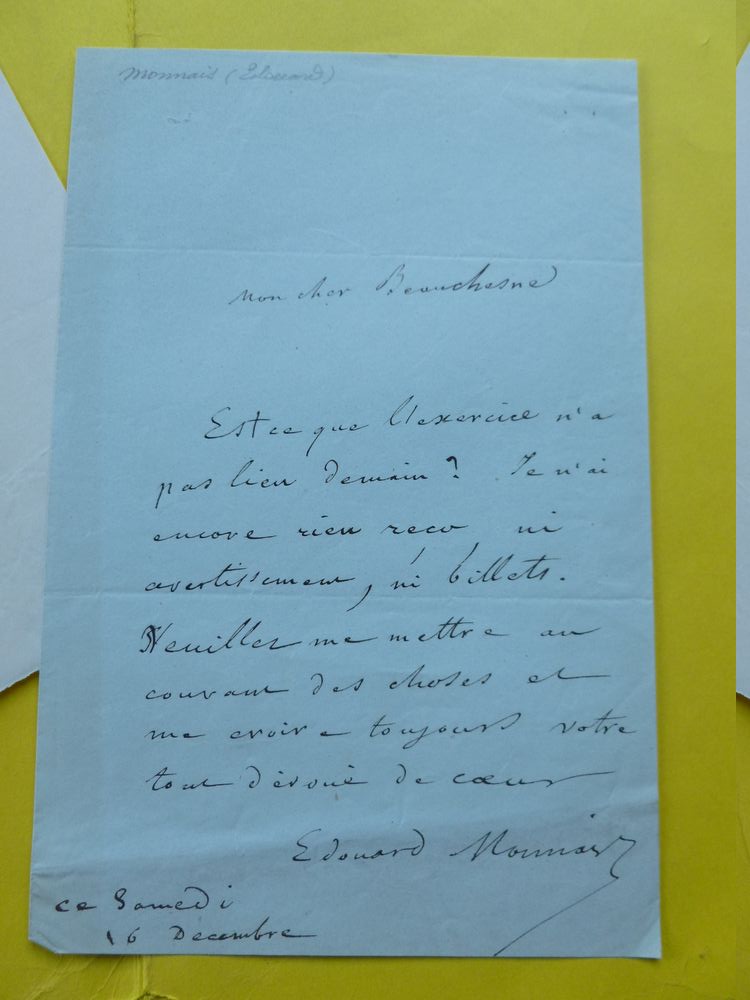 Monnais (Edouard)
Mon cher Beauchesne
Est ce que l'exercice n'a
pas lieu demain ? Je n'ai
encore rien recu ni
avertissement, ni billets.
Veuillez me mettre au
courant des choses et
me croire toujours votre
tout dévoué de cœur
Edouard Monnais
ce Samedi
16 Decembre